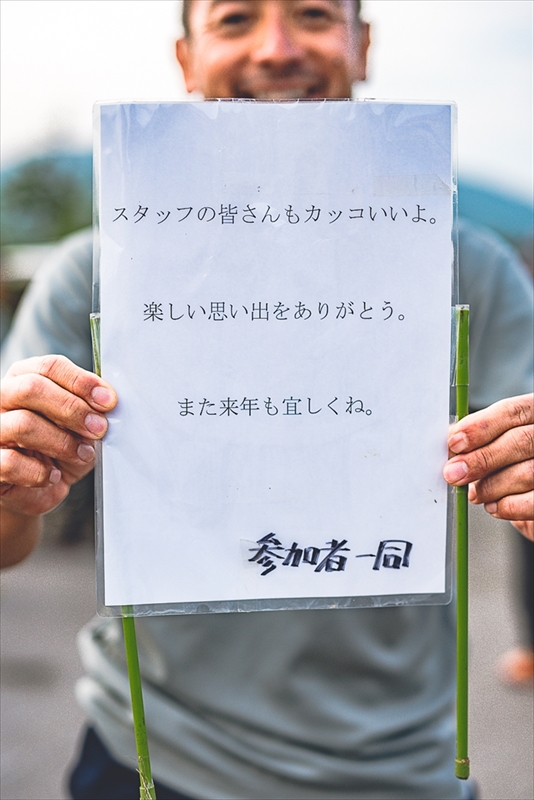 スタッフの皆さんもカッコいいよ。
楽しい思い出をありがとう。
また来年も宜しくね。
参加者一同